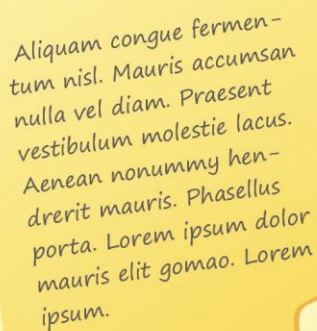 Aliquam congue fermen-
tum nisl. Mauris accumsan
nulla vel diam. Praesent
vestibulum molestie lacus.
Aenean nonummy hen-
drerit mauris. Phasellus
porta. Lorem ipsum dolor
mauris elit gomao. Lorem
ipsum.